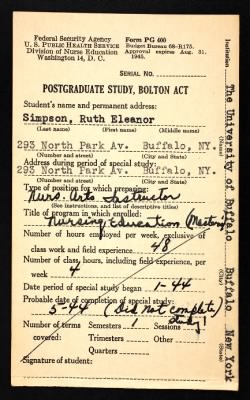 Federal Security Agency
U. S. PUBLIC HEALTH SERVICE
Division of Nurse Education
Washington 14, D. C.
Form PG 400
Budget Bureau 68-R175.
Approval expires Aug. 31, 1945.
SERIAL NO.
POSTGRADUATE STUDY, BOLTON ACT
Student's name and permanent address:
Simpson, Ruth Eleanor
(Last name) (First name) (Middle name)
293 North Park Av. Buffalo, NY.
(Number and street) (City and State)
Address during period of special study:
293 North Park Av. Buffalo, NY.
(Number and street) (City and State)
Type of position for which preparing:
Nurs. Arts Instructor
(See instructions, and list of descriptive titles)
Title of program in which enrolled:
Nursing Education (Masters)
Number of hours employed per week, exclusive of
class work and field experience. 48
Number of class hours, including field experience, per
week 4
Date period of special study began 1-44
Probable date of completion of special study:
5-44 (Did not complete study)
Number of terms Semesters 1 Sessions
covered: Trimesters Other
Quarters
Signature of student:
Institution The University of Buffalo Buffalo New York
(Name) (City) (State)